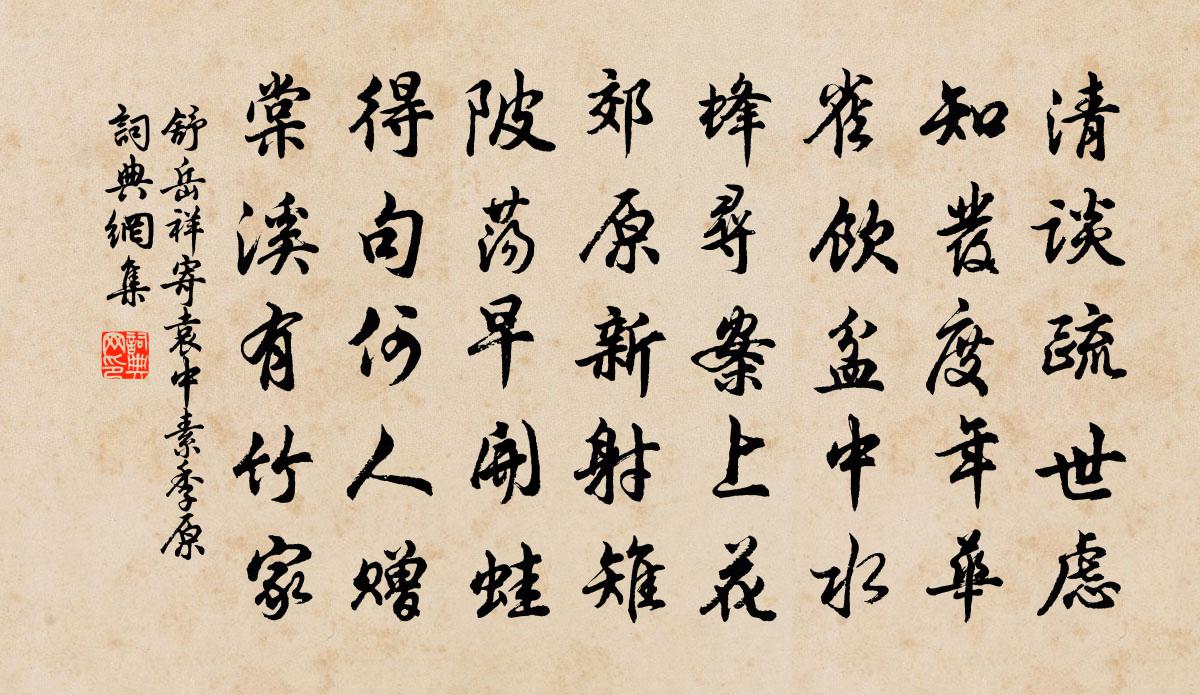 清談疏世慮
知發度年華
雀飲盆中水
蜂尋案上花
郊原新射雉
陂蕩早開蛙
得句何人贈
棠溪有竹家
舒岳祥寄袁中素季原
詞典網集
詞典网印